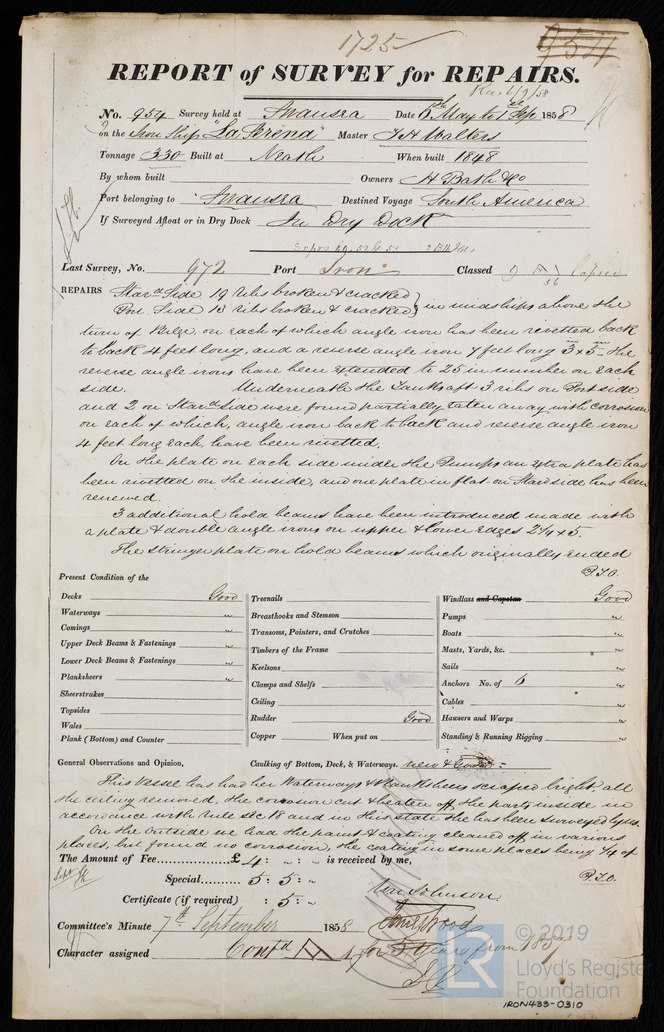 1725
954
REPORT of SURVEY for REPAIRS.
Rec. 6/9/58
No. 954 Survey held at Swansea Date 6th May to 1st Sep 1858
on the Iron Ship "La Serena" Master J H Walters
Tonnage 330 Built at Neath When built 1848
By whom built Owners H Bath & Co
Port belonging to Swansea Destined Voyage South America
If Surveyed Afloat or in Dry Dock In Dry Dock
Last Survey, No. 972 Port Iron Classed 9 A 1
56
REPAIRS Starbd Side 19 ribs broken & cracked
Port Side 13 ribs broken & cracked } in midships above the
turn of Bilge, on each of which angle iron has been rivetted back
to back 4 feet long, and a reverse angle iron 7 feet long 3 in x 5 in - the
reverse angle irons have been extended to 25 in number on each
side. Underneath the Tanks aft 3 ribs on Port side
and 2 on Starbd Side were found partially eaten away with corrosion
on each of which, angle iron back to back and reverse angle iron
4 feet long each, have been rivetted.
On the plate on each side under the Pumps an extra plate has
been rivetted on the inside, and one plate in flat on Starside has been
renewed.
3 additional hold beams have been introduced made with
a plate & double angle irons on upper & lower edges 2 1/4 x 5.
The stringer plate on hold beams which originally ended
P.T.O.
Present Condition of the
Decks Good
Waterways "
Comings "
Upper Deck Beams & Fastenings "
Lower Deck Beams & Fastenings "
Planksheers "
Sheerstrakes
Topsides
Wales
Plank (Bottom) and Counter
Treenails
Breasthooks and Stemson
Transoms, Pointers, and Crutches
Timbers of the Frame
Keelsons
Clamps and Shelfs
Ceiling
Rudder Good
Copper When put on
Windlass and Capstan Good
Pumps "
Boats "
Masts, Yards, &c. "
Sails "
Anchors No. of 6 "
Cables "
Hawsers and Warps "
Standing & Running Rigging "
General Observations and Opinion, Caulking of Bottom, Deck, & Waterways. new & Good
This Vessel has had her Waterways & Planksheers scraped bright, all
the ceiling removed, the corrosion cut & beaten off the parts inside in
accordance with rule sec 18 and in this state she has been surveyed by us.
On the outside we had the paint & coating cleaned off in various
places, but found no corrosion, the coating in some places being 1/4 of
P.T.O.
The Amount of Fee £ 4 : " : " is received by me,
Special 5 : 5 : "
Certificate (if required) : 5 : "
Wm Johnson
Committee's Minute 7th September 1858
Character assigned Contd A 1 for 5 Years from 1857
© 2019
LR
Lloyd's Register
Foundation
IRON433-0310